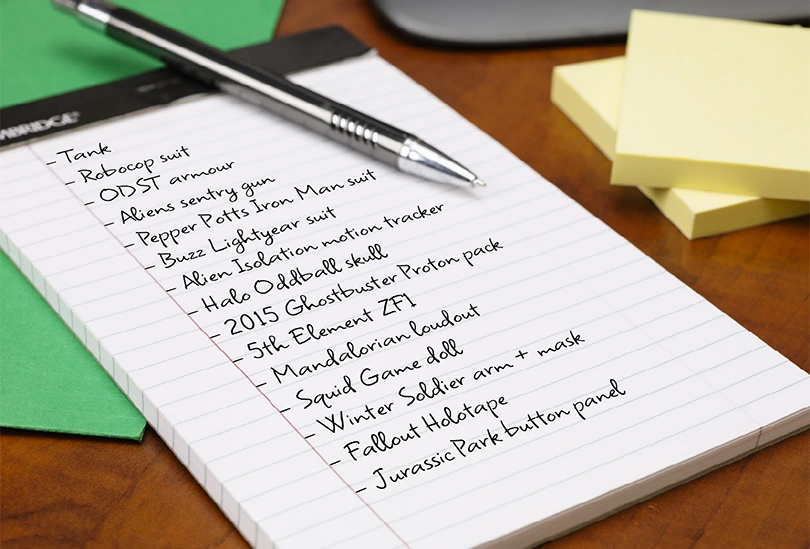 MBRIDGE
-Tank
- Robocop suit
- ODST armour
- Aliens sentry gun
- Pepper Potts Iron Man suit
- Buzz Lightyear suit
- Alien Isolation motion tracker
- Halo Oddball skull
- 2015 Ghostbuster Proton pack
- 5th Element ZF1
- Mandalorian loudout
- Squid Game doll
- Winter Soldier arm + mask
- Fallout Holotape
- Jurassic Park button panel